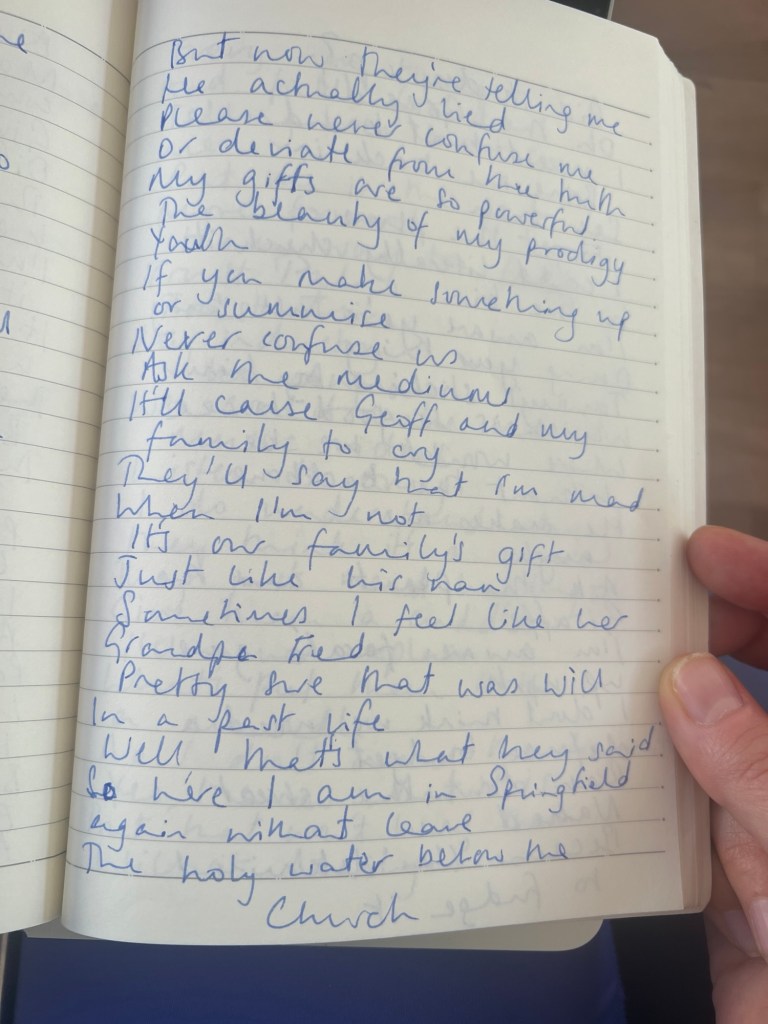 But now they're telling me
He actually lied
Please never confuse me
Or deviate from the truth
My gifts are so powerful
The beauty of my prodigy
Youth
If you make something up
or summise
Never confuse us
Ask the mediums
It'll cause Geoff and my
family to cry
They'll say that I'm mad
When I'm not
It's our family's gift
Just like his nan
Sometimes I feel like her
Grandpa Fred
Pretty sure that was Will
In a past life
Well that's what they said
So here I am in Springfield
again without leave
The holy water below the
Church